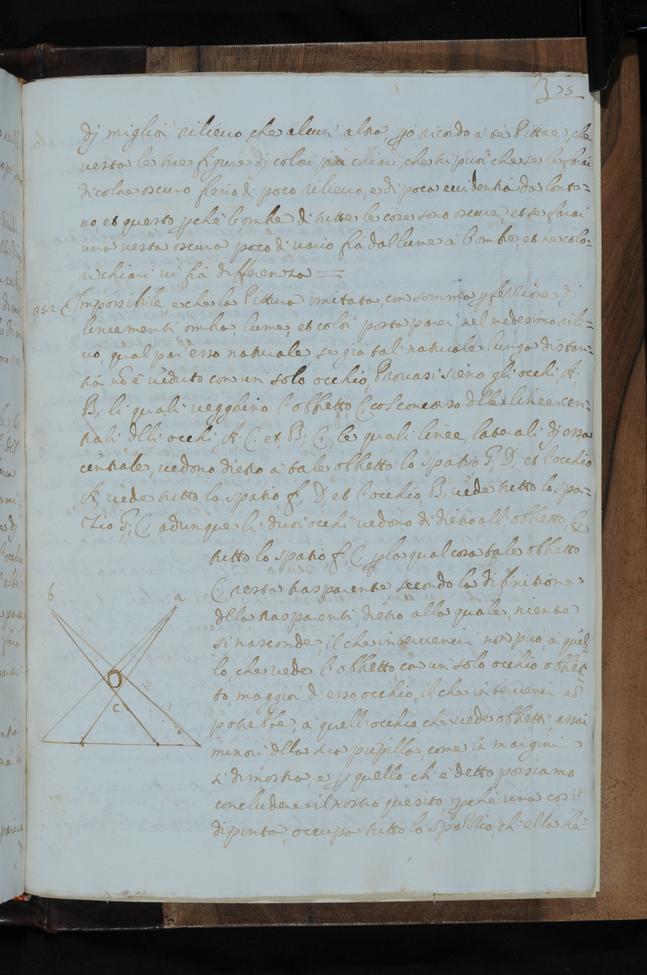 375
dj miglior rilieuo, che alcun' altra ꝑo ricordo a te Pittore, che
uesta le tue figure dj colori piu chiari, che tu puoi che se le farai
di colore oscuro fieno di poco rilieuo, e di poca euidentia da lonta=
no et questo ꝑche l'ombre di tutte le cose sono oscure, et se farai
una uesta oscura poco di uario fia dal lume a l'ombre, et ne colo=
ri chiari ui fia differenza
Impossibile e che la Pittura imitata, con somma ꝑfettione dj
lineamenti ombra, lume, et colori possa parer nel medesimo rile=
uo, qual par esso naturale se gia tal' naturale lunga distan=
tia nō e ueduto con un solo occhio Prouasi sieno gli occhi A
B, li quali uegghino l'obbetto C col concorso delle linee cen=
trali delli occhi, A C. et B; C, le quali linee laterali dj essa
centrale, uedono dietro a tale obbetto lo spatio G, D, et l'occhio
A uede tutto lo spatio f. D et l'occhio B, uede tutto lo spa=
tio G; adunque li duoi occhi uedono di dietro all' obbetto,
tutto lo spatio f, ꝑ la qual cosa tale obbetto
C, resta trasparente secondo la difinitione
della trasparenti, dietro alla quale, niente
si nasconde, il che interuenir non puo, a quel
lo, che uede l'obbetto con un solo occhio obbet
to, maggior' d'esso occhio, il che interuenir nō
potrebbe, a quell' occhio che uede obbetti, assai
minori della sua pupilla come in margini
si dimostra, e ꝑ quello ch' e detto possiamo
concludere il nostro quesito, ꝑche una cosa
dipinta, occupa tutto lo spatio, ch' ella ha
b
a
c